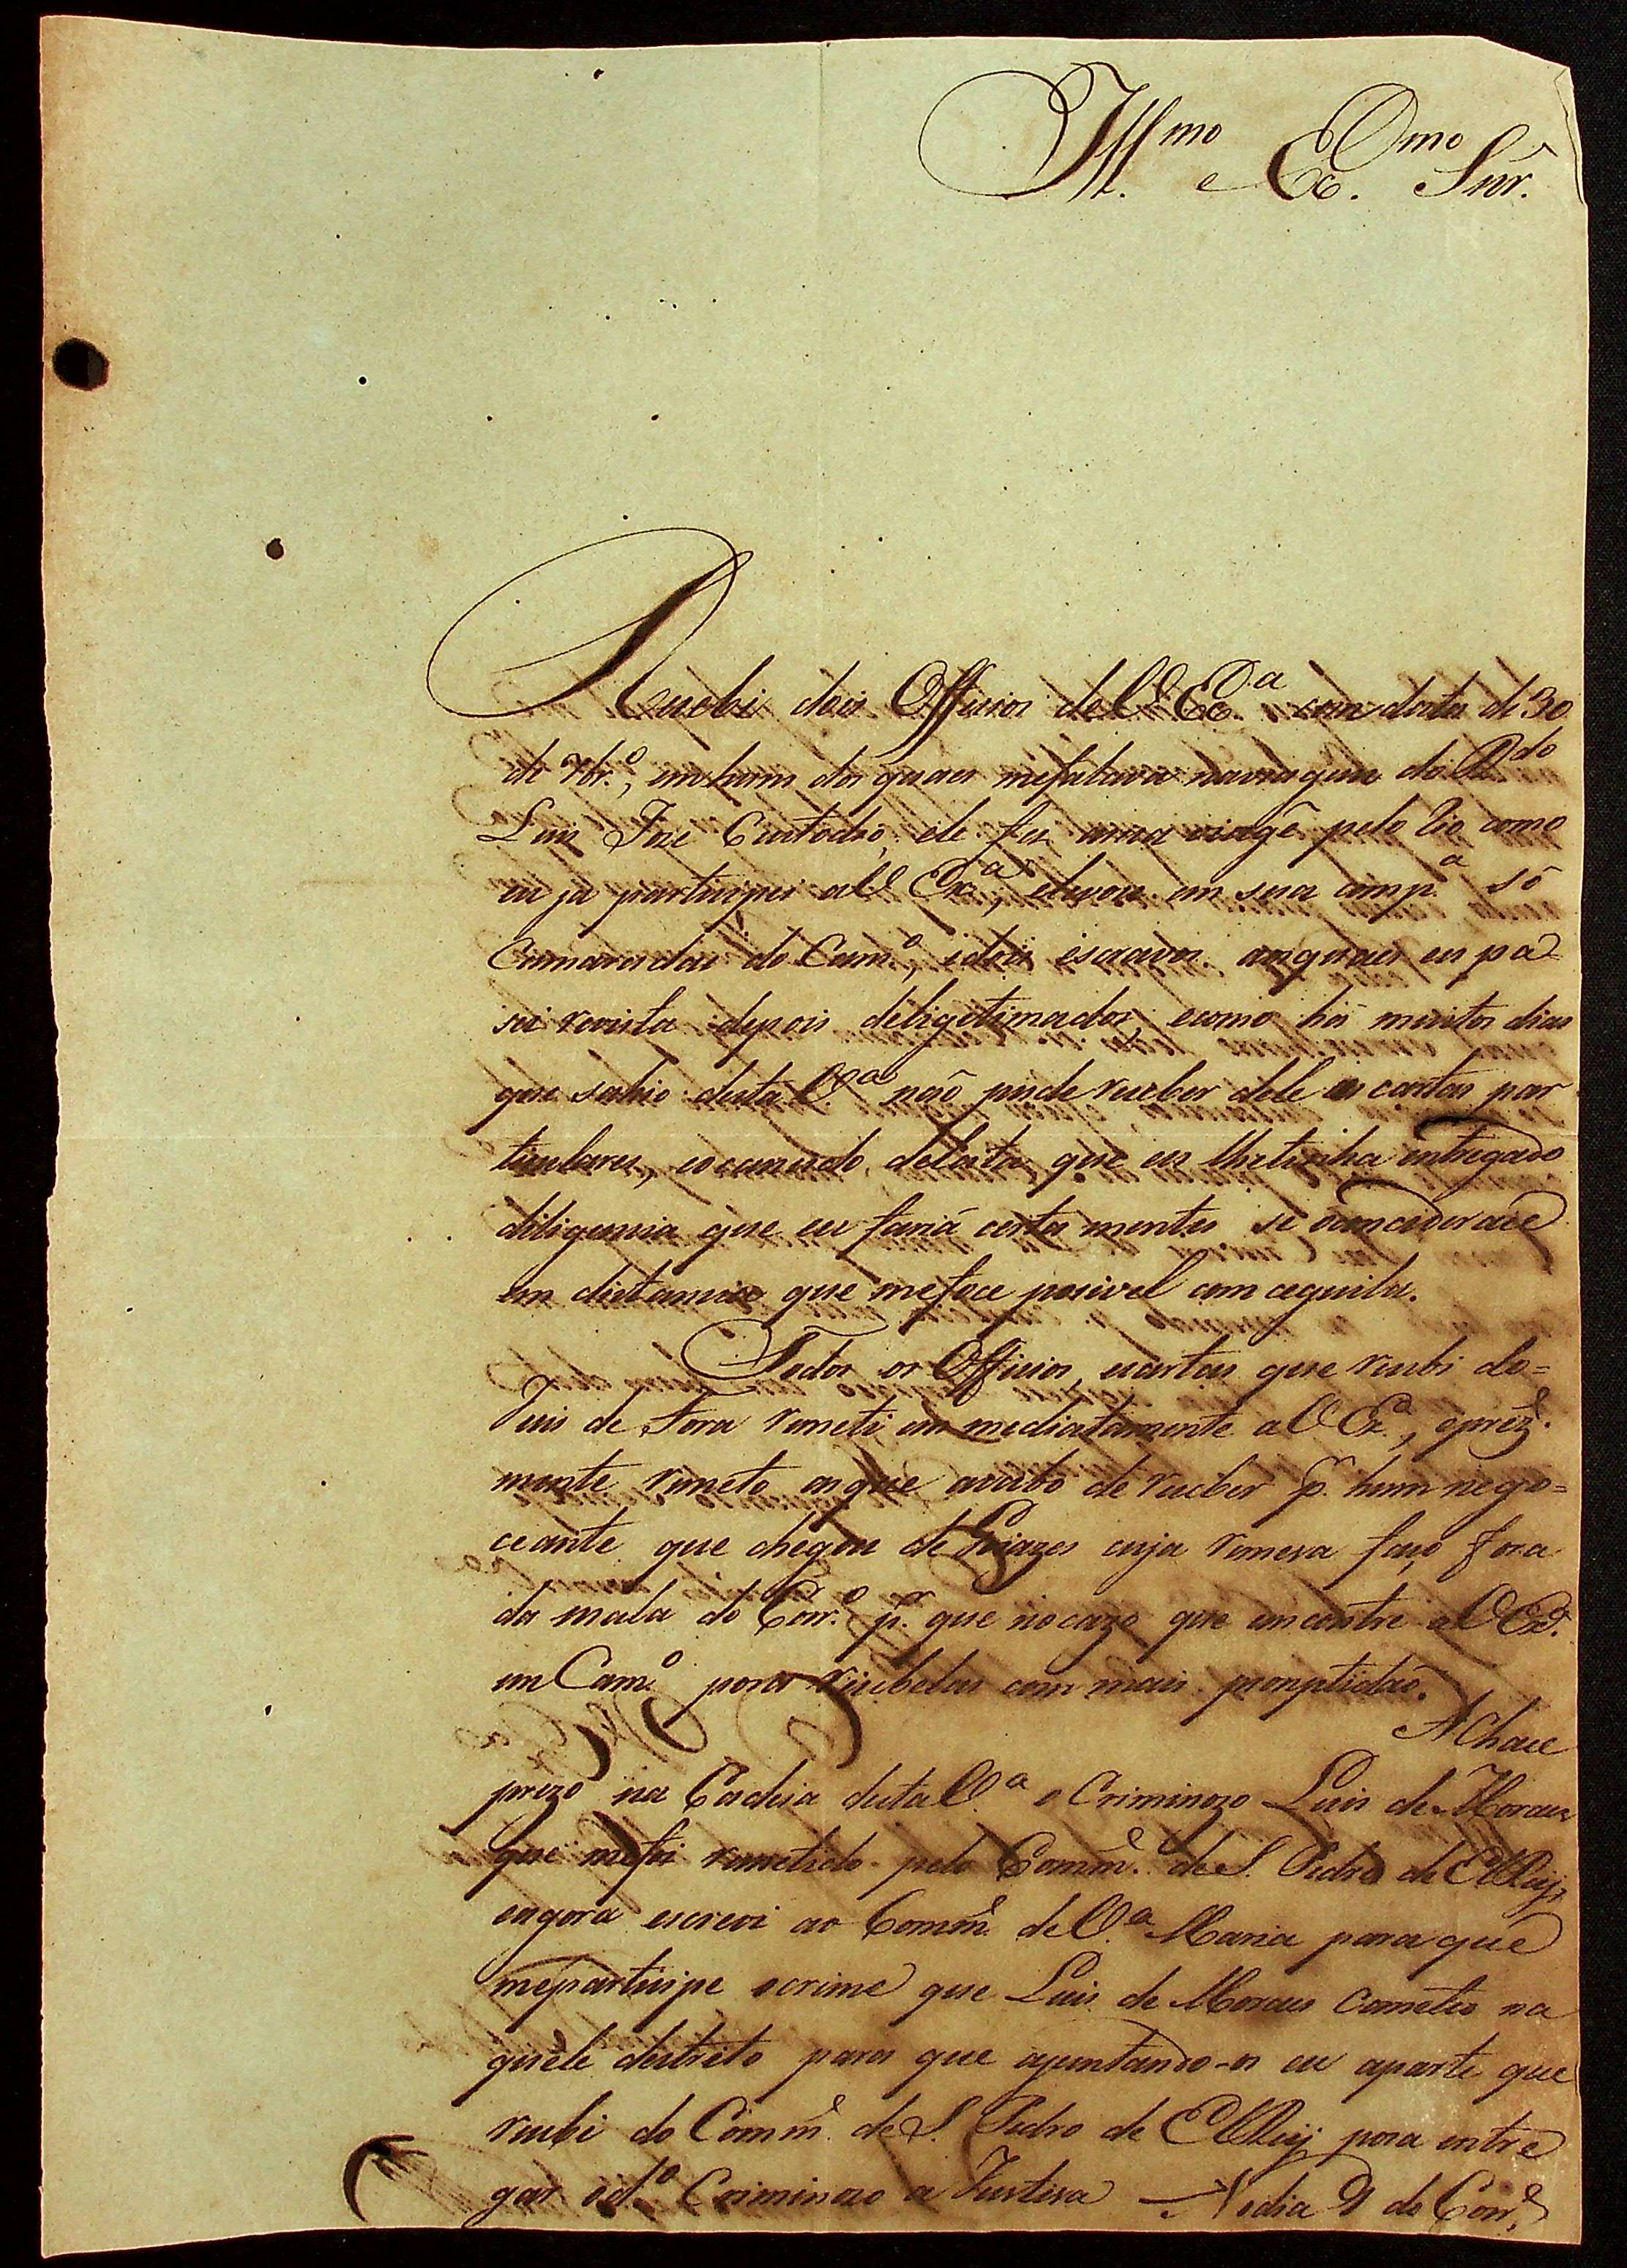 Ill.mo e Ex.mo Snr.
Recebi dois Officios de V. Ex.a com data de 30
de 7br.o, em hum dos quaes mefalava na viagem do R.do
Luis Joze Custodio, ele fez uma viagẽ pelo Rio como
eu ja participei a V. Ex.a, elevou em sua comp.a só
Camaradas do Cam.o, edois escravos aosquaes eu pa-
sei revista depois deligitimados, ecomo há muitos dias
que sahio desta V.a não pude receber dele as cartas par
ticulares, eo que eu lhetinha entregado
diligencia que eu fariá certa mente se
em distancia que mefoce posivel com ceguila.
Todos os Officios, ecartas que recebi do=
Juis de Fora remeti em mediatamente a V. Ex.a, eprez.e
mente remeto asque acabo de receber p.r hum nego=
ceante que chegou de Goiazes cuja remesa faço fora
da mala do Corr.o p.a que nocazo que encontre a V. Ex.a
em Cam.o possa recebelas com mais promptidão.
Achase
prezo na Cadeia desta V.a o Criminozo Luis de Moraes
que mefoi remetido pelo Comm.e de S. Pedro de ElRey,
eagora escrevi ao Comm.e de V.a Maria para que
meparticipe ocrime que Luis de Moraes cometeo na
quele destrito para que ajuntando-o eu aparte que
recebi do Comm.e de S. Pedro de ElRey possa entre
gar od.o Criminozo a Justisa — No dia 9 do Corr.e